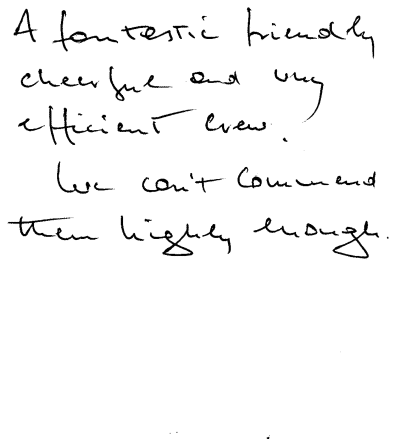 A fantastic friendly
cheerful and very
efficient crew.
We can't commend
them highly enough.